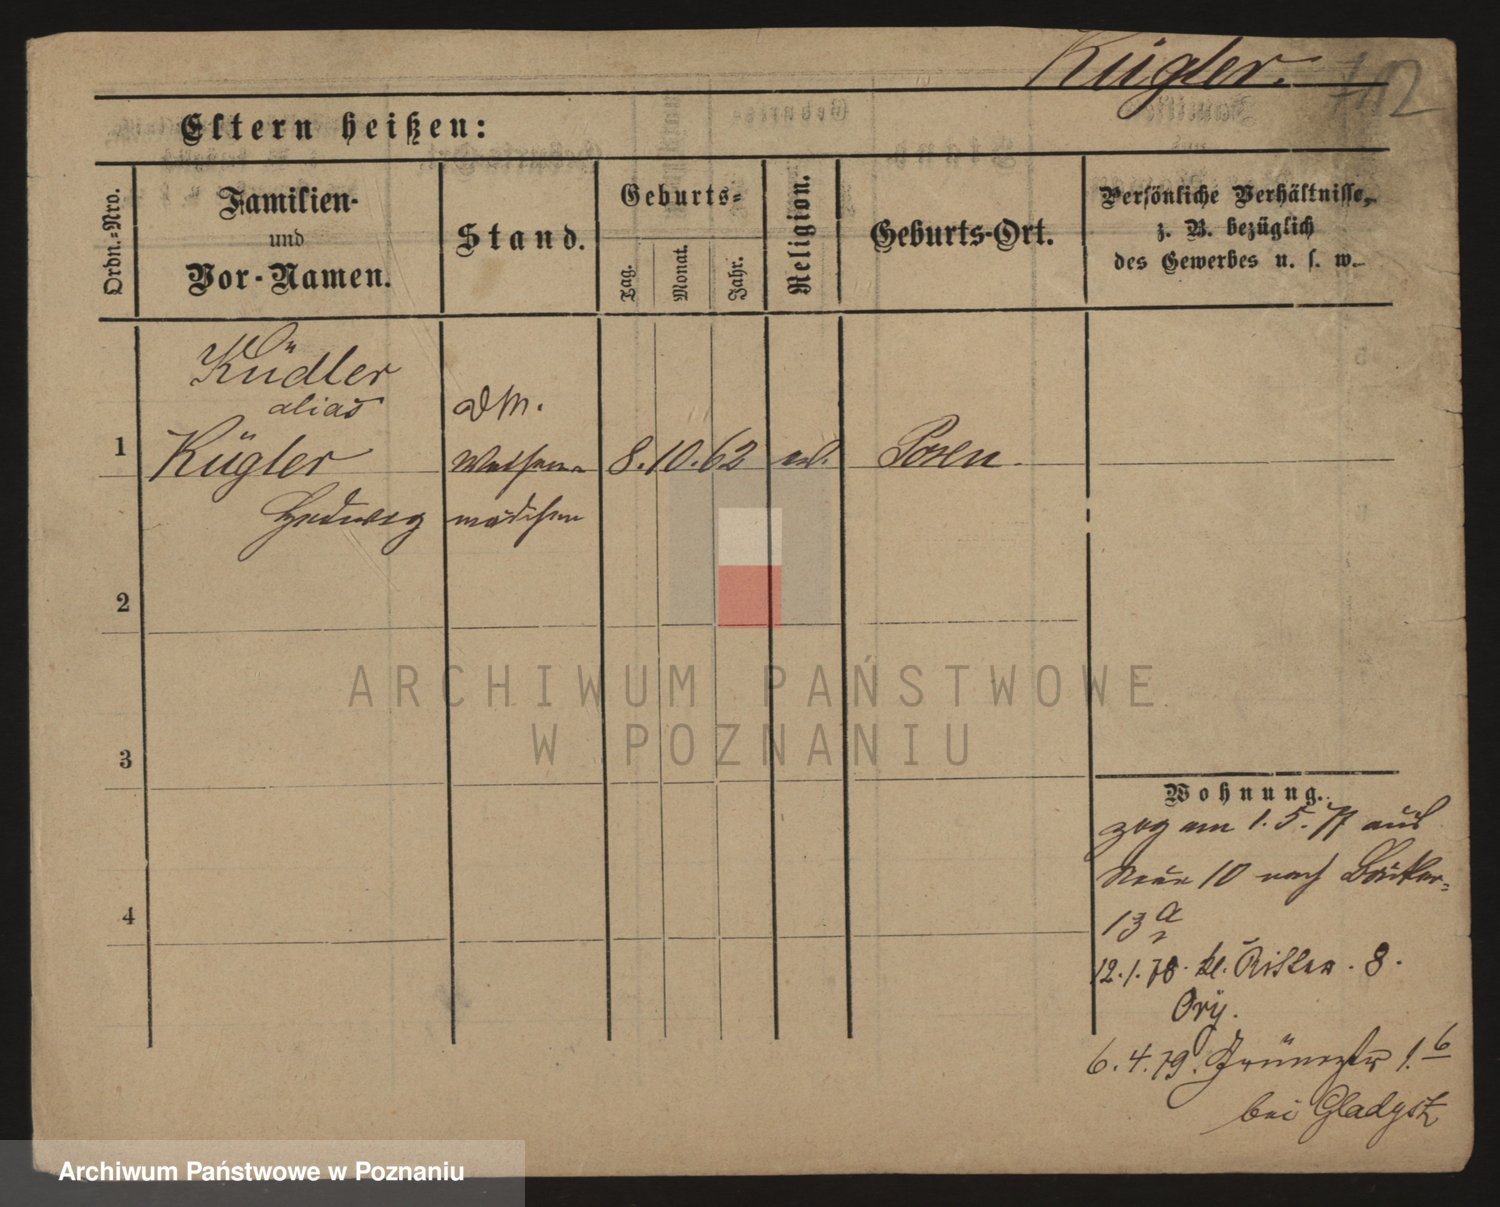 Kügler.
712
Eltern heißen:
Ordn.-Nro.
Familien-
und
Vor-Namen.
Stand.
Geburts-
Tag.
Monat.
Jahr.
Religion.
Geburts-Ort.
Persönliche Verhältnisse,
z. B. bezüglich
des Gewerbes u. s. w.
Küdler
alias
1 Kügler Waisen- 8. 10. 62 Posen.
Hedwig mädchen
2
3
4
Wohnung.
zog am 1. 5. 77 aus
Neue 10 nach Bäcker-
13 a
12. 1. 78. kl. Ritter. 8.
Ory.
6. 4. 79. 1. 6
bei Gladysz
ARCHIWUM PAŃSTWOWE
W POZNANIU
Archiwum Państwowe w Poznaniu